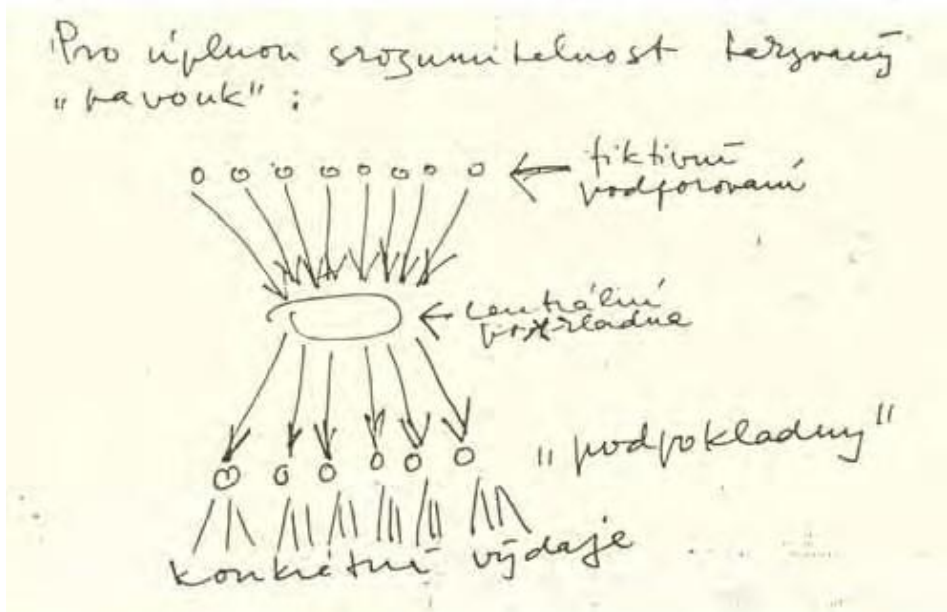 Pro úplnou srozumitelnost tezvaný
"pavouk":
← fiktivně
podporovaní
← centrální
pokladna
"podpokladny"
konkrétní výdaje